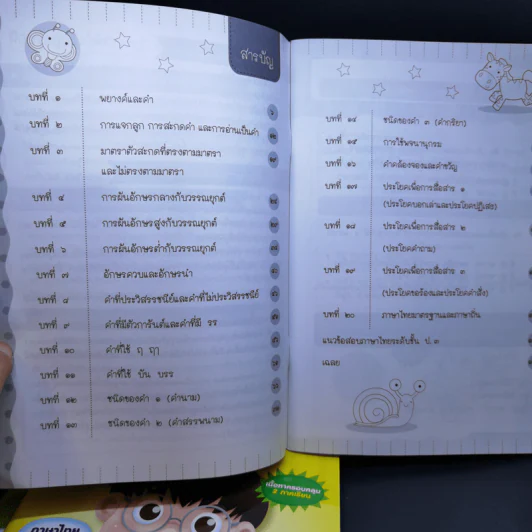 สารบัญ
บทที่ ๑ พยางค์และคำ
บทที่ ๒ การแจกลูก การสะกดคำ และการอ่านเป็นคำ
บทที่ ๓ มาตราตัวสะกดที่ตรงตามมาตรา
และไม่ตรงตามมาตรา
บทที่ ๔ การผันอักษรกลางกับวรรณยุกต์
บทที่ ๕ การผันอักษรสูงกับวรรณยุกต์
บทที่ ๖ การผันอักษรต่ำกับวรรณยุกต์
บทที่ ๗ อักษรควบและอักษรนำ
บทที่ ๘ คำที่ประวิสรรชนีย์และคำที่ไม่ประวิสรรชนีย์
บทที่ ๙ คำที่มีตัวการันต์และคำที่มี รร
บทที่ ๑๐ คำที่ใช้ ฤ ฤๅ
บทที่ ๑๑ คำที่ใช้ บัน บรร
บทที่ ๑๒ ชนิดของคำ ๑ (คำนาม)
บทที่ ๑๓ ชนิดของคำ ๒ (คำสรรพนาม)
บทที่ ๑๔ ชนิดของคำ ๓ (คำกริยา)
บทที่ ๑๕ การใช้พจนานุกรม
บทที่ ๑๖ คำคล้องจองและคำขวัญ
บทที่ ๑๗ ประโยคเพื่อการสื่อสาร ๑
(ประโยคบอกเล่าและประโยคปฏิเสธ)
บทที่ ๑๘ ประโยคเพื่อการสื่อสาร ๒
(ประโยคคำถาม)
บทที่ ๑๙ ประโยคเพื่อการสื่อสาร ๓
(ประโยคขอร้องและประโยคคำสั่ง)
บทที่ ๒๐ ภาษาไทยมาตรฐานและภาษาถิ่น
แนวข้อสอบภาษาไทยระดับชั้น ป.๓
เฉลย
เนื้อหาครอบคลุม
2 ภาคเรียน
ภาษาไทย